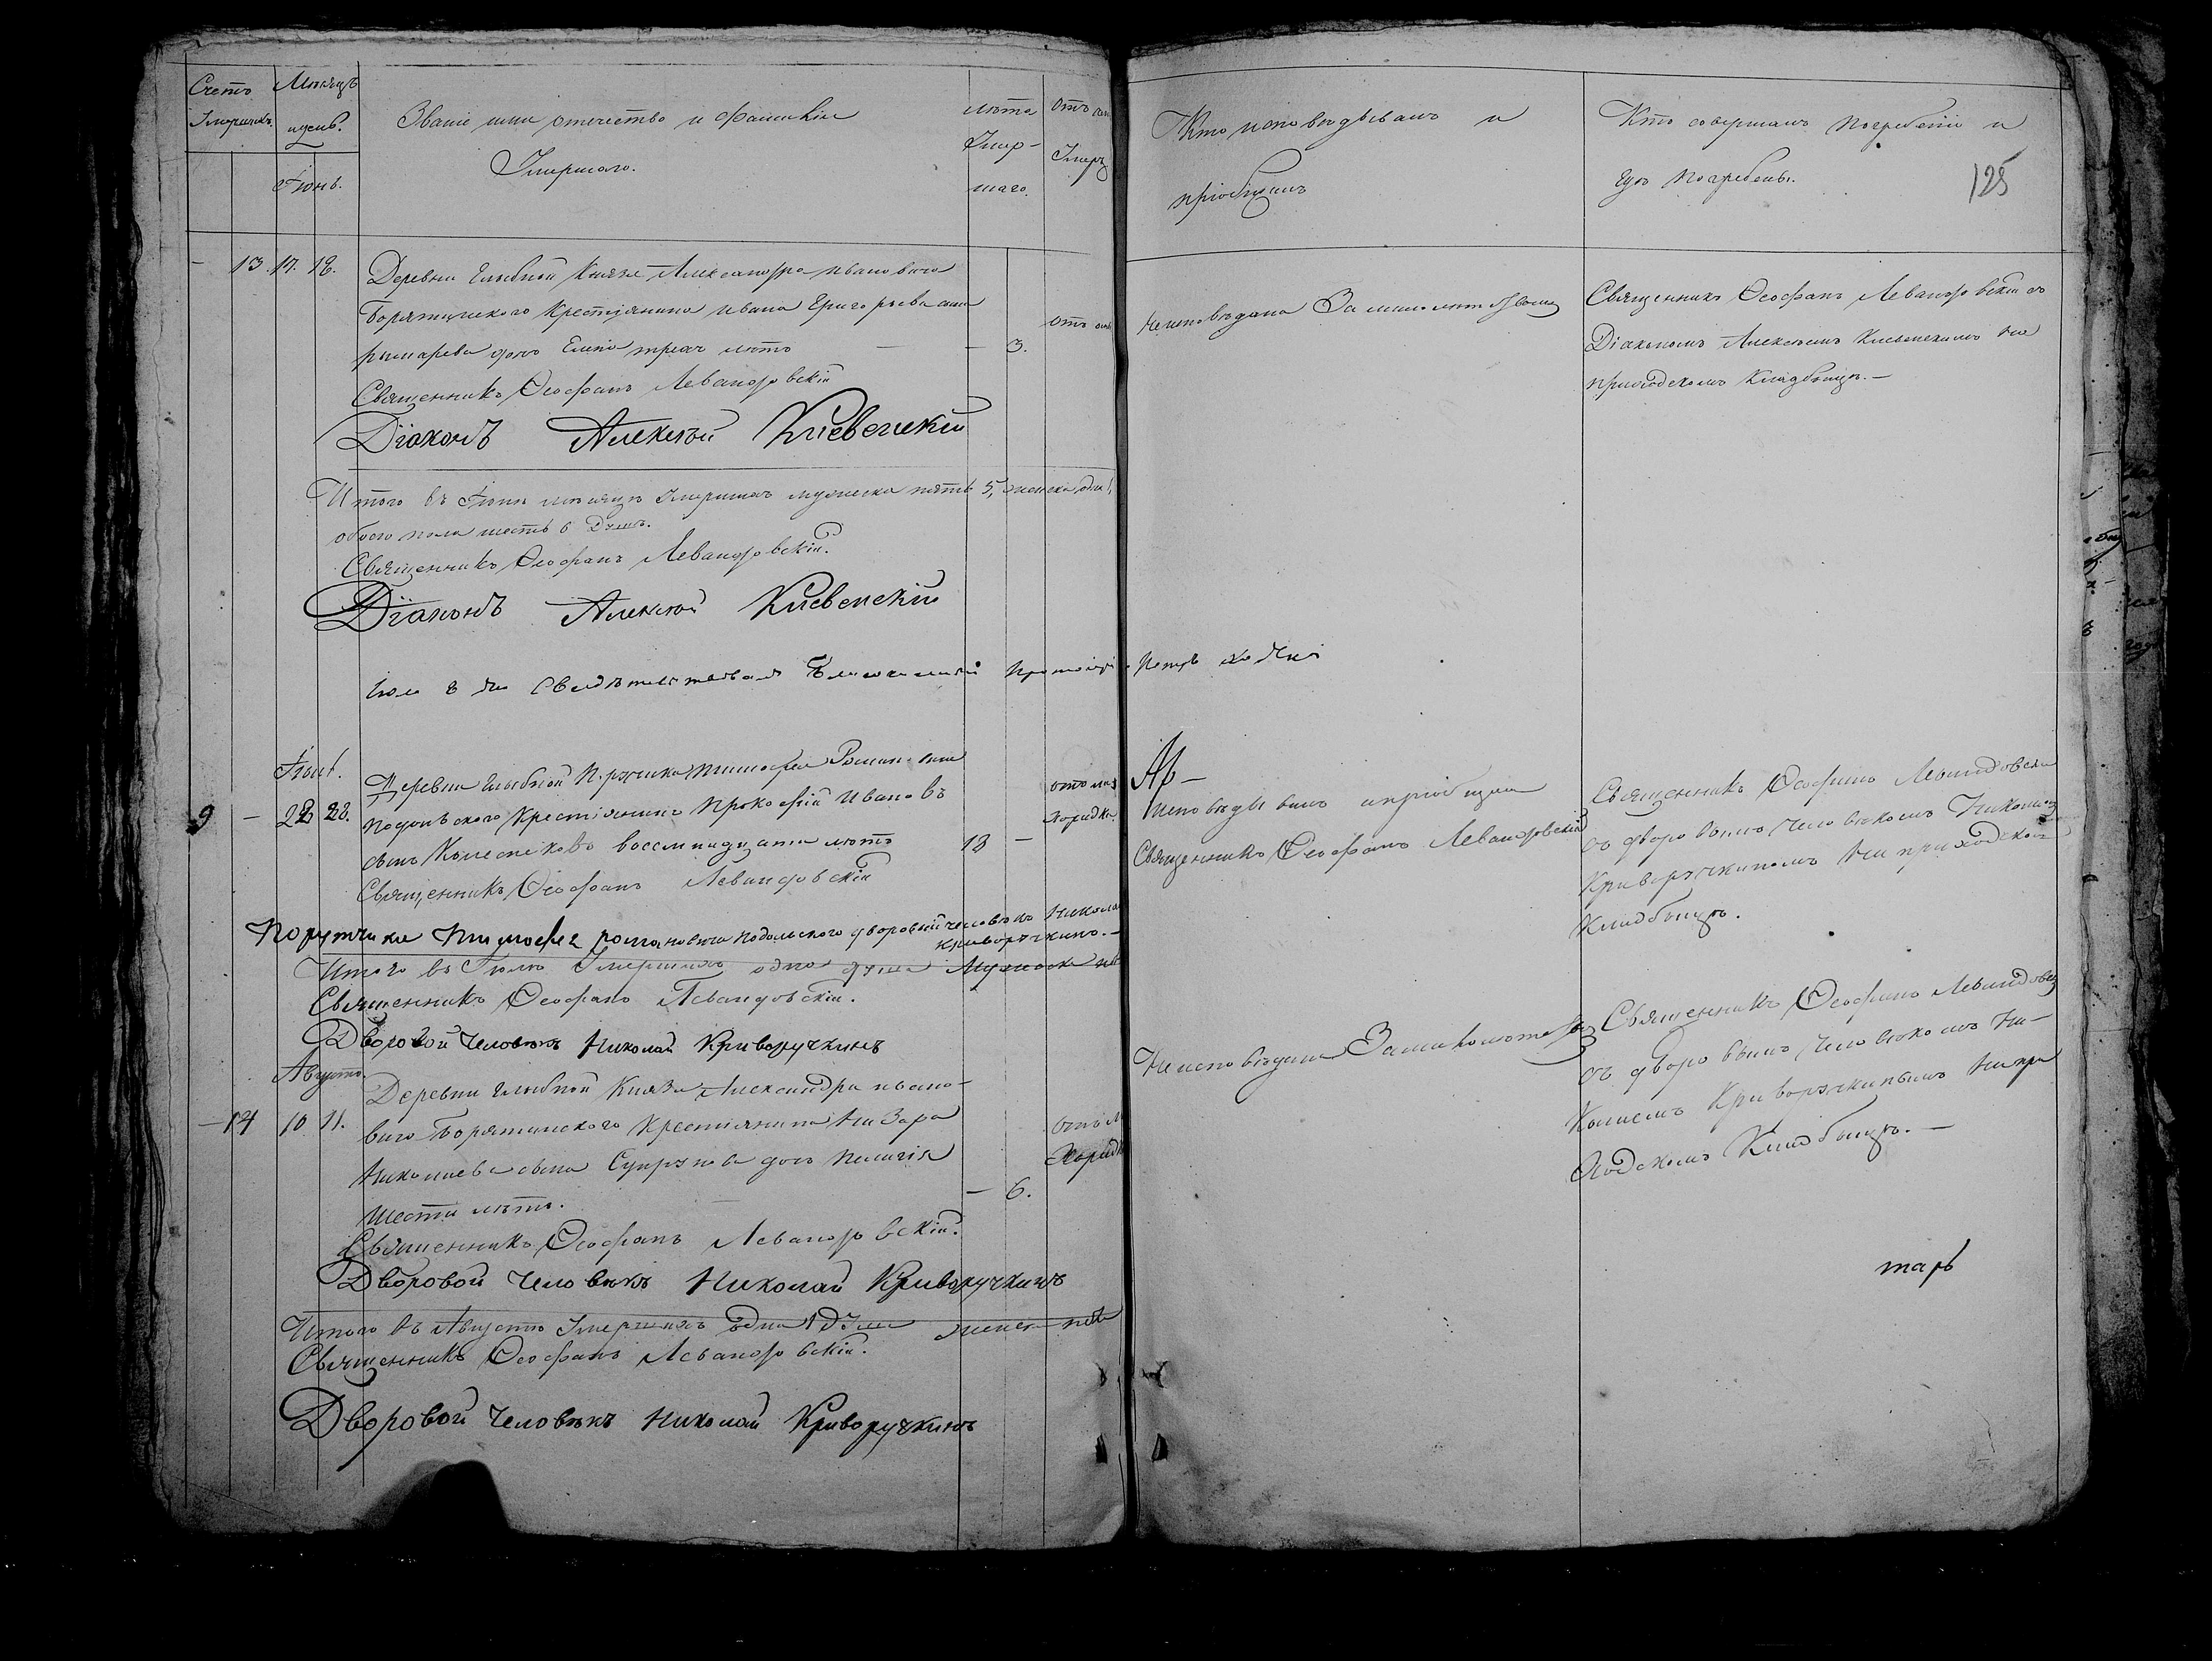 Счетъ Умершихъ.
Мѣсяцъ и день.
Званіе имя отечество и фамилія
Умершаго.
лѣта
Умер-
шаго.
Отъ чего
Умеръ
Кто исповѣдывалъ и
пріобщалъ
Кто совершалъ погребеніе и
гдѣ погребены.
125
Іюнь.
- 13. 17. 18.
Деревни Глыбной Князя Александра Ивановича
Борятинскаго Крестьянина Ивана Григорьева сына
дочь Елена трехъ лѣтъ - - 3.
Священникъ Ѳеофанъ Левандовскій
Діаконъ Алексѣй Кіевенскій
неисповѣдана За малолѣтствомъ
Священникъ Ѳеофанъ Левандовскій съ
Діакономъ Алексѣемъ Кіевенскимъ на
приходскомъ Кладбищѣ. -
Итого въ Іюнѣ мѣсяцѣ Умершихъ мужеска пять 5, женска одна 1,
обоего пола шесть 6 Душъ.
Священникъ Ѳеофанъ Левандовскій.
Діаконъ Алексѣй Кіевенскій
Іюля 8 дня Свидѣтельствовалъ Благочинный Протоіерей Петръ
Деревни Глыбной Порутчика Тимофея Романовича
9 - 22 23.
Подольскаго Крестьянина Прокофій Ивановъ
сынъ восемнадцати лѣтъ 18 -
Священникъ Ѳеофанъ Левандовскій
Исповѣдывалъ и пріобщалъ
Священникъ Ѳеофанъ Левандовскій
Священникъ Ѳеофанъ Левандовскій
съ дворовымъ человѣкомъ Николаемъ
Криворучкинымъ на приходскомъ
Кладбищѣ.
Порутчика Тимофея романовича Подольского дворовый человѣкъ Николай
Криворучкинъ. -
Итого въ Іюлѣ Умершихъ одна душа Мужеска
Священникъ Ѳеофанъ Левандовскій.
Дворовой Человѣкъ Николай Криворучкинъ
Августъ.
Деревни Глыбной Князя Александра Ивано-
- 14 10 11.
вича Борятинскаго Крестьянина Назара
Николаева сына Супрунова дочь Пелагія
Шести лѣтъ. - 6.
Священникъ Ѳеофанъ Левандовскій.
Дворовой Человѣкъ Николай Криворучкинъ
Неисповѣдана За малолѣтствомъ
Священникъ Ѳеофанъ Левандовскій
съ дворовымъ Человѣкомъ Ни-
колаемъ Криворучкинымъ на при
ходскомъ Кладбищѣ. -
тарь
Итого въ Августѣ Умершихъ одна 1 Душа женска пола
Священникъ Ѳеофанъ Левандовскій.
Дворовой Человѣкъ Николай Криворучкинъ